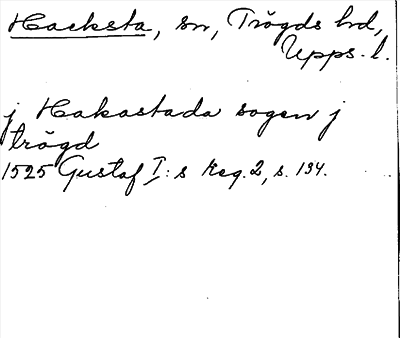 Hacksta, sn, Trögds hd,
Upps. l.
j Hakastada sogen j
trögd
1525 Gustaf I:s Reg. 2, s. 134.